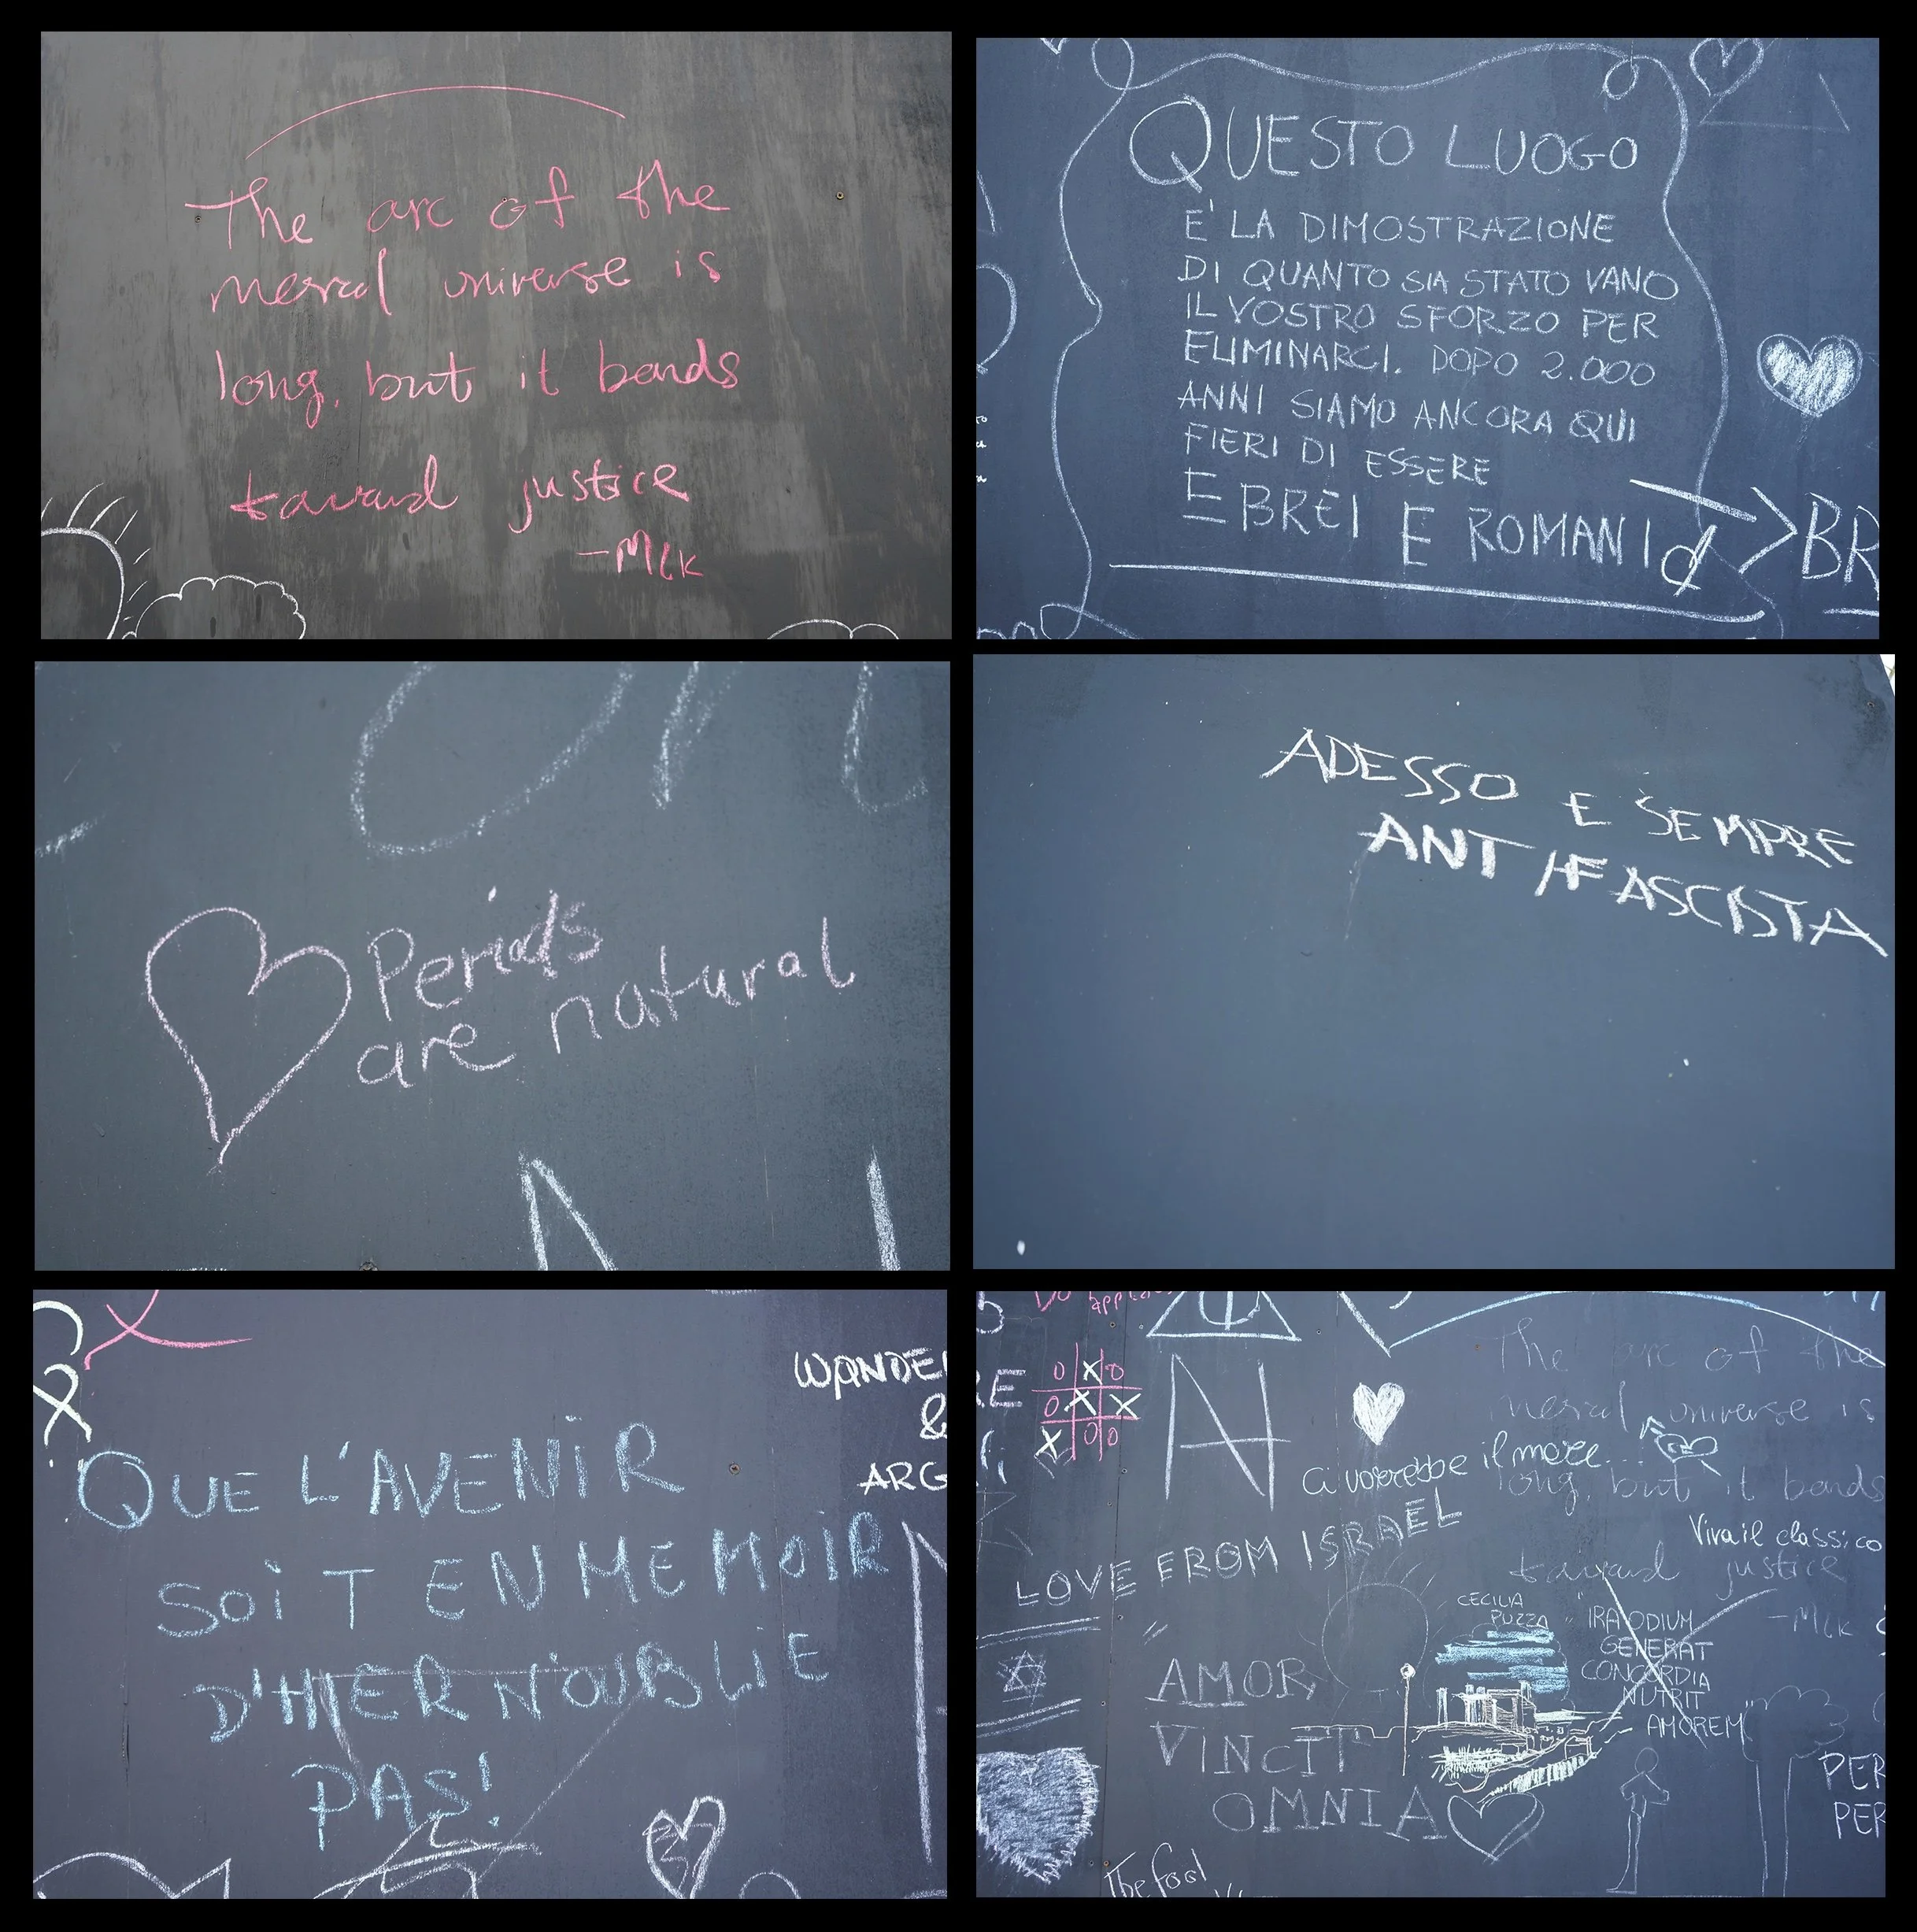 The arc of the
moral universe is
long, but it bends
toward justice
-MLK
QUESTO LUOGO
E' LA DIMOSTRAZIONE
DI QUANTO SIA STATO VANO
IL VOSTRO SFORZO PER
ELIMINARCI. DOPO 2.000
ANNI SIAMO ANCORA QUI
FIERI DI ESSERE
EBREI E ROMANI
BR
Periods
are natural
ADESSO E SEMPRE
ANTIFASCISTA
WANDE
&
ARG
QUE L'AVENIR
SOIT EN MEMOIR
D'HIER N'OUBLIE
PAS!
The arc of the
moral universe is
Ci vorrebbe il mare...
long, but it bends
LOVE FROM ISRAEL
Viva il classico
toward justice
-MLK
CECILIA
PUZZA
"IRA ODIUM
GENERAT
CONCORDIA
NUTRIT
AMOREM"
AMOR
VINCIT
OMNIA
PER
PER
The fool